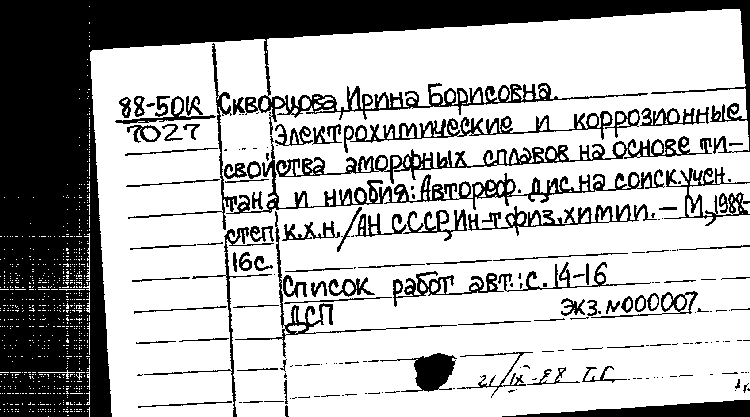 88-50К Скворцова, Ирина Борисовна.
7027 Электрохимические и коррозионные
свойства аморфных сплавов на основе ти-
тана и ниобия: Автореф. дис. на соиск. учен.
степ. к.х.н. / АН СССР, Ин-т физ. химии. – М., 1988-
16с.
Список работ авт.: с. 14-16
ДСП Экз. N000007.
21/IX-88 Т.Г.